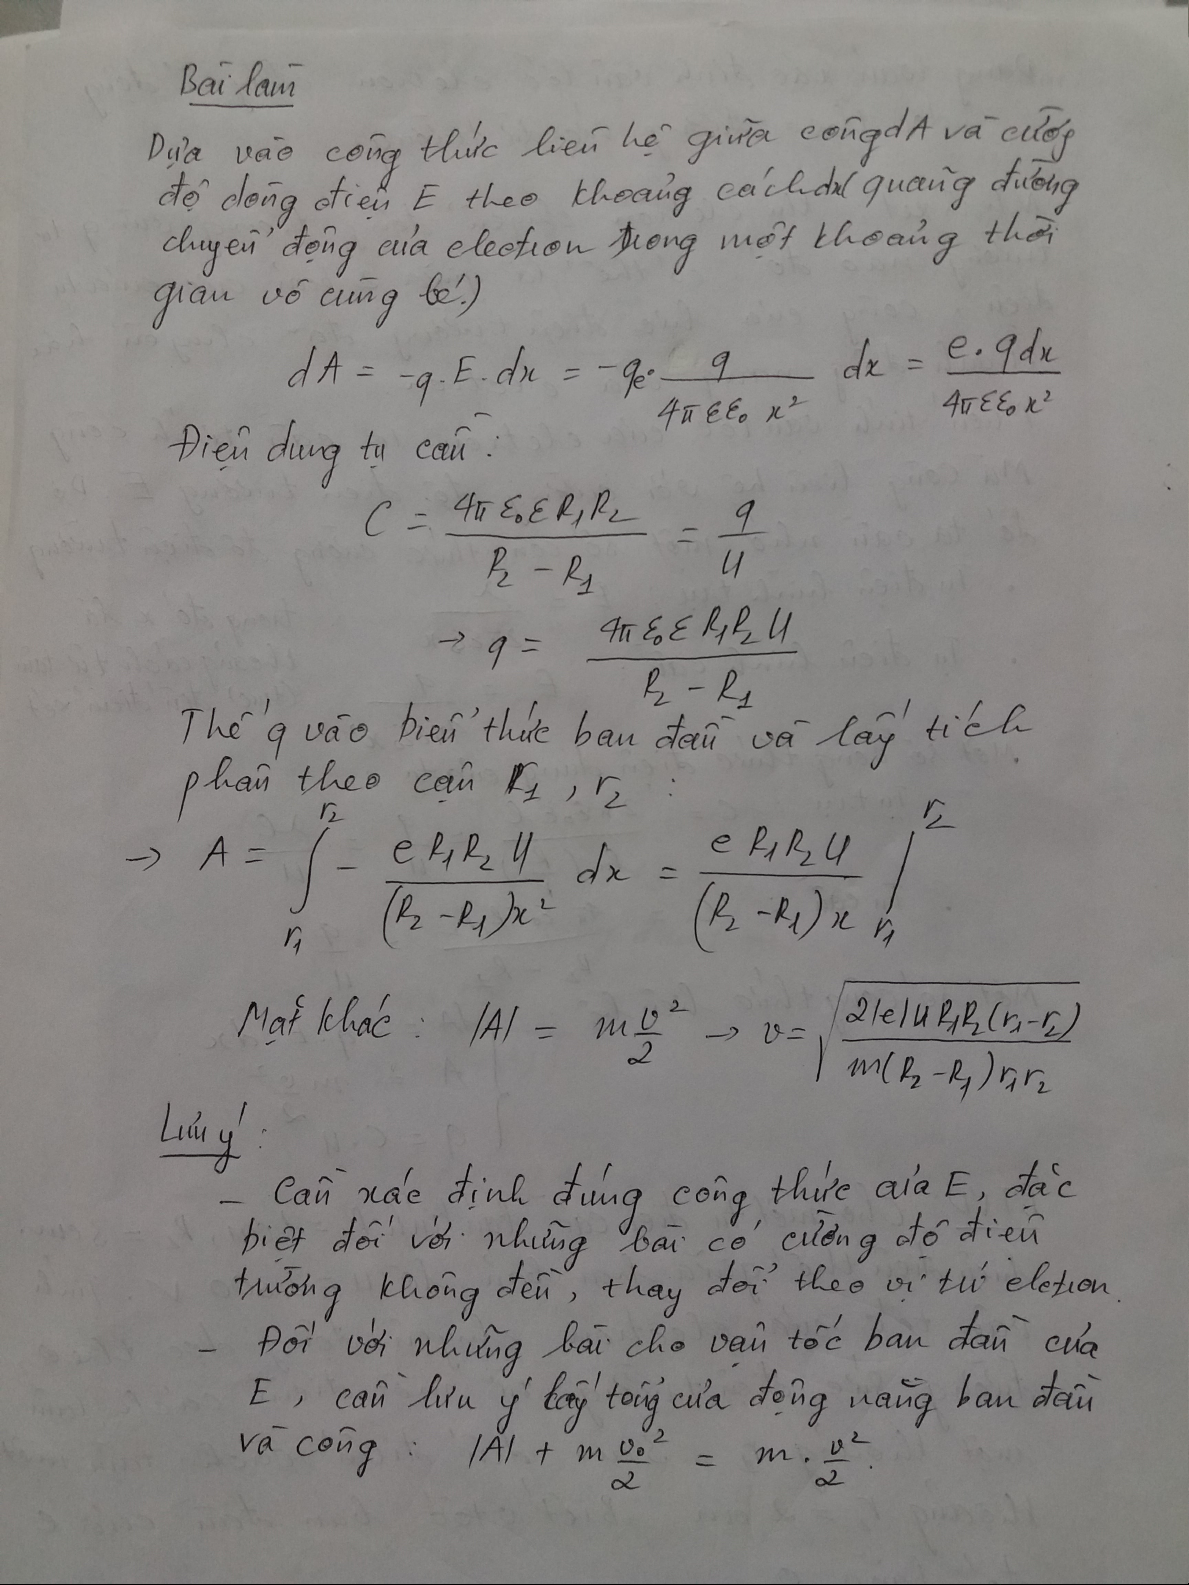 Bài làm
Dựa vào công thức liên hệ giữa công dA và cường
độ dòng điện E theo khoảng cách dx (quãng đường
chuyển động của election trong một khoảng thời
gian vô cùng bé.)
dA = -q.E.dx = -qe. q / (4πεε₀ x²) dx = e.qdx / (4πεε₀x²)
Điện dung tụ cầu:
C = 4πε₀εR₁R₂ / (R₂ - R₁) = q / U
→ q = 4πε₀εR₁R₂U / (R₂ - R₁)
Thế q vào biểu thức ban đầu và lấy tích
phân theo cận r₁, r₂ :
→ A = ∫_{r₁}^{r₂} - eR₁R₂U / ((R₂-R₁)x²) dx = eR₁R₂U / ((R₂-R₁)x) |_{r₁}^{r₂}
Mặt khác: |A| = m v²/2 → v = √(2|e|UR₁R₂(r₁-r₂) / (m(R₂-R₁)r₁r₂))
Lưu ý:
- Cần xác định đúng công thức của E, đặc
biệt đối với những bài có cường độ điện
trường không đều, thay đổi theo vị trí eletron.
- Đối với những bài cho vận tốc ban đầu của
E, cần lưu ý lấy tổng của động năng ban đầu
và công: |A| + m v₀²/2 = m. v²/2.